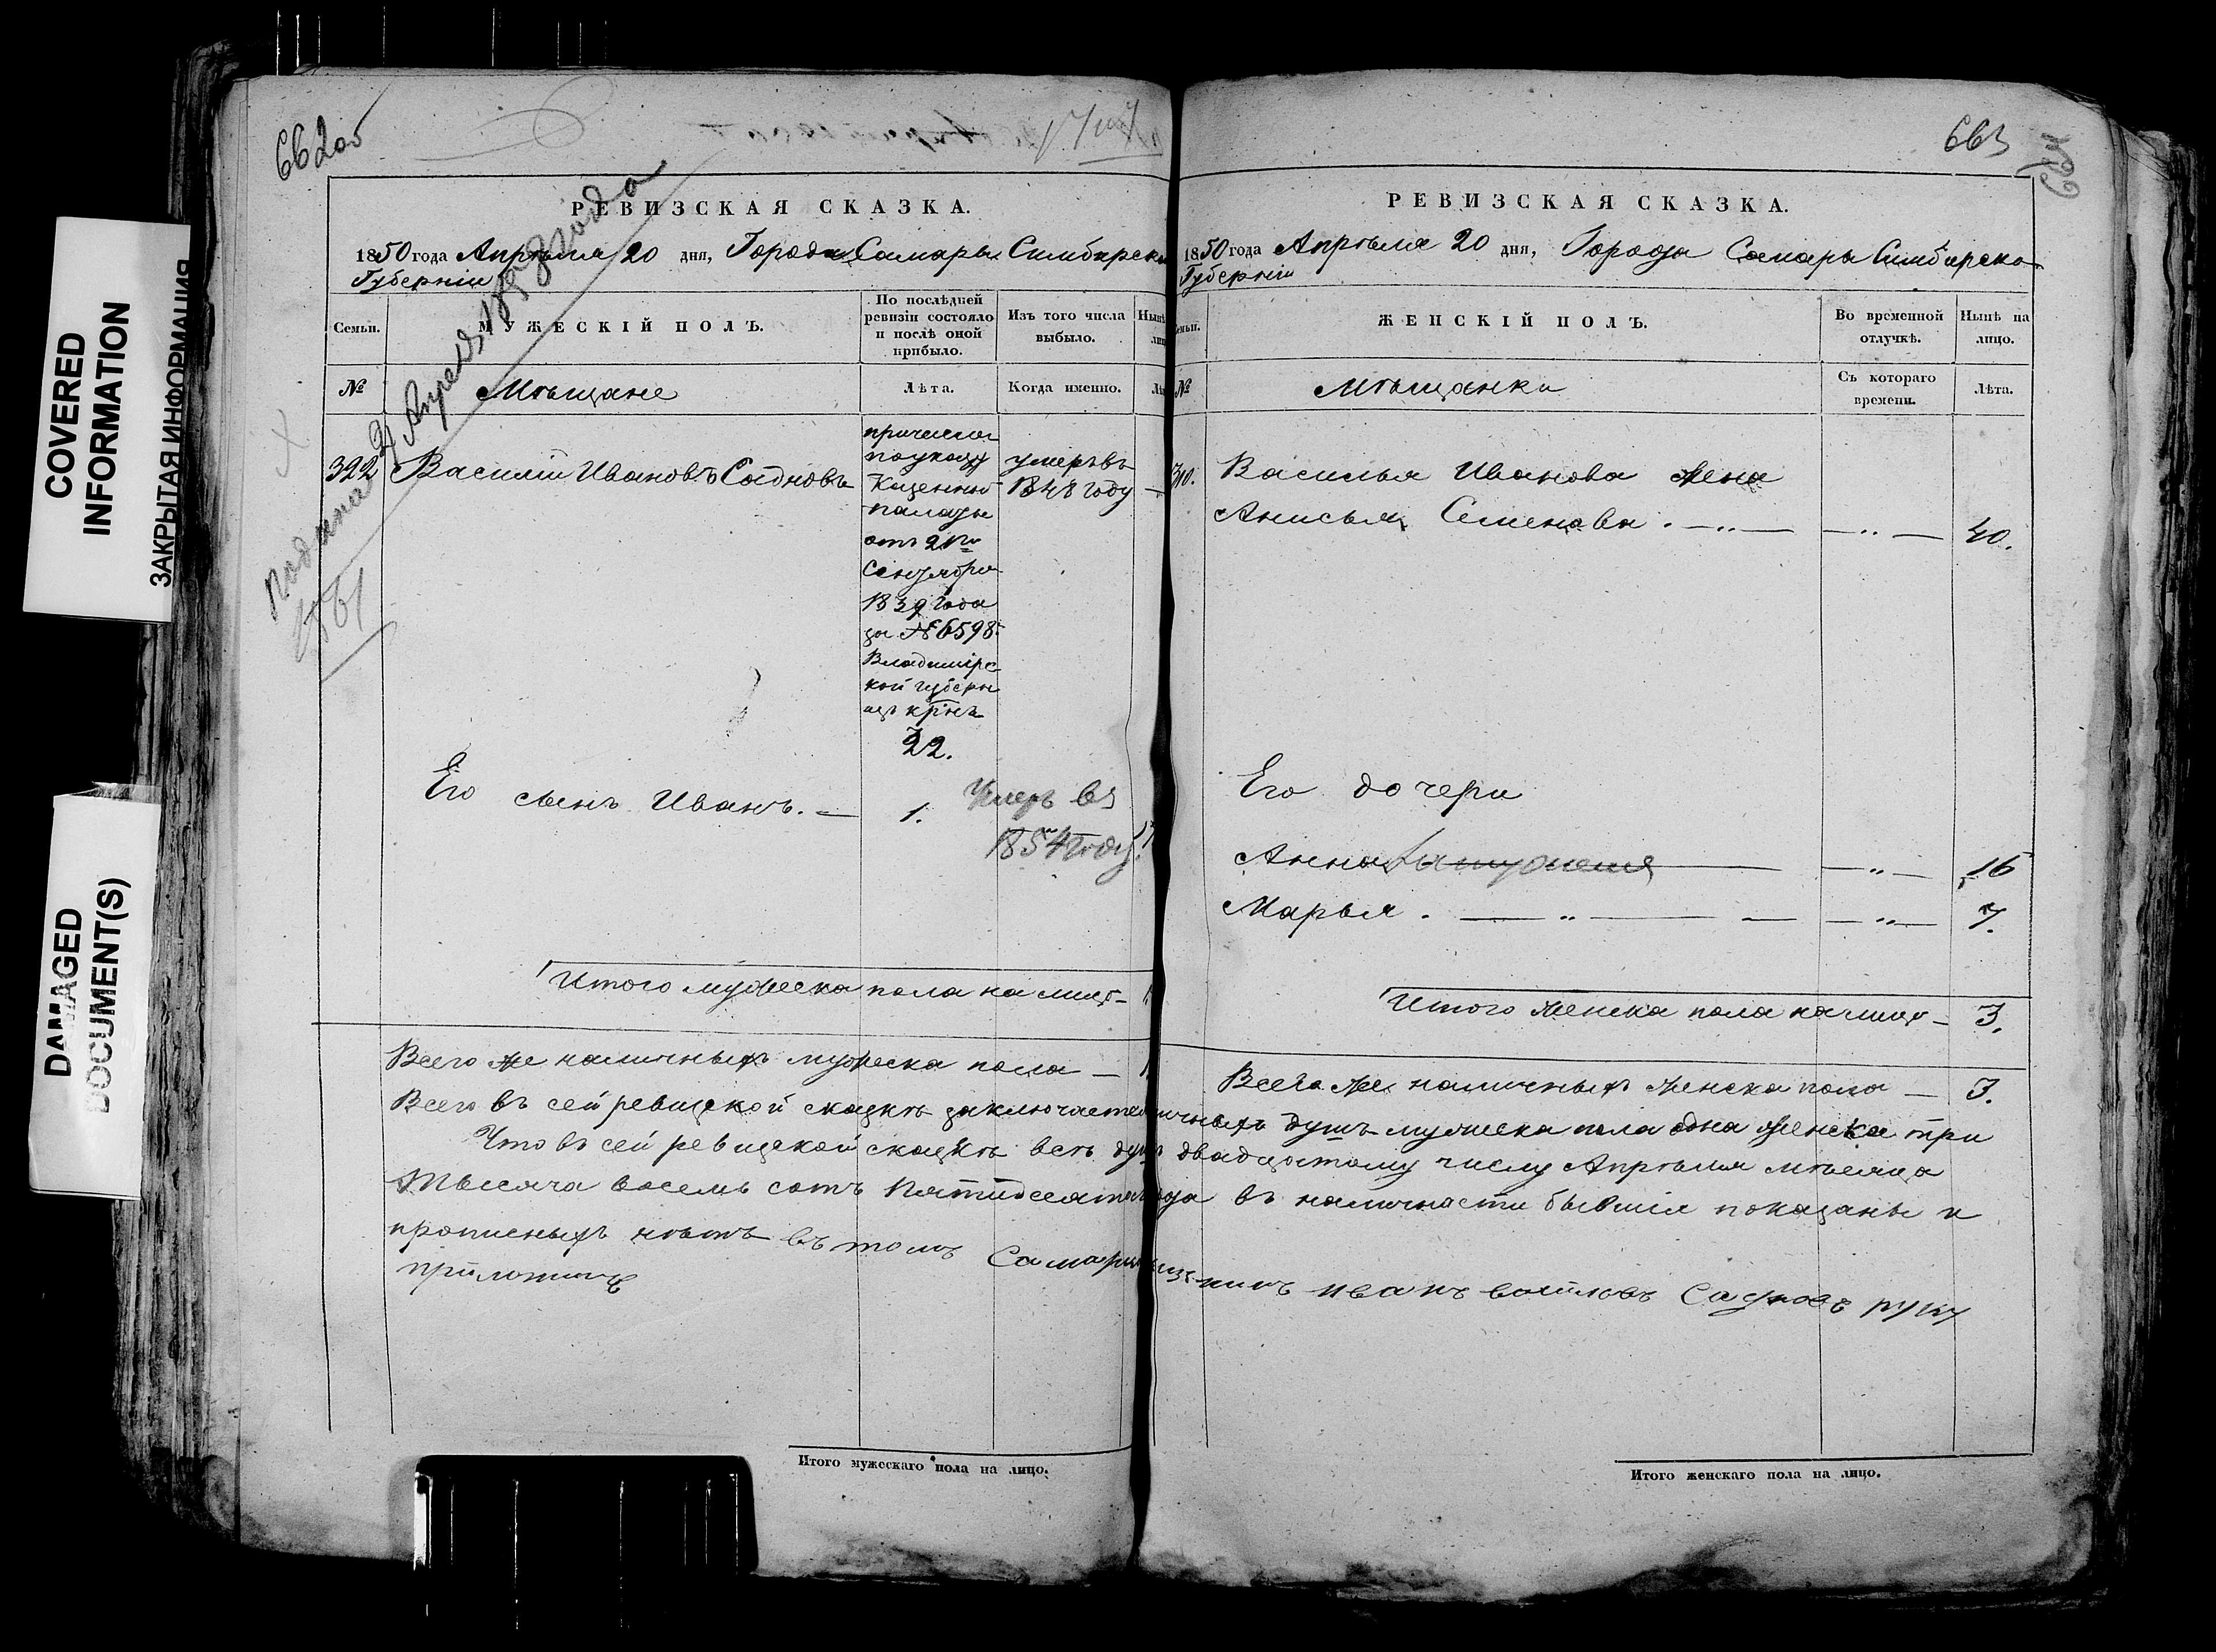 COVERED
INFORMATION
ЗАКРЫТАЯ ИНФОРМАЦИЯ
DAMAGED
DOCUMENT(S)
662об
РЕВИЗСКАЯ СКАЗКА.
1850 года Апрѣля 20 дня, Города Самары Симбирской
Губерніи
Семьи.
МУЖЕСКІЙ ПОЛЪ.
По послѣдней
ревизіи состояло
и послѣ оной
прибыло.
Изъ того числа
выбыло.
№
Мѣщане
Лѣта.
Когда именно.
Апреля года
322
Василій Ивановъ Садновъ
причислен
по указу
Казенной
палаты
отъ 21го
Сентября
1839 года
за №6598
Владимірс-
кой губерн
изъ крнъ
22.
умеръ въ
1848 году
Его сынъ Иванъ.
1.
Умеръ въ
1854 году
Итого мужеска пола на лицо
Всего же наличныхъ мужеска пола
Итого мужескаго пола на лицо.
663
664
РЕВИЗСКАЯ СКАЗКА.
1850 года Апрѣля 20 дня, Города Самары Симбирской
Губерніи
ЖЕНСКІЙ ПОЛЪ.
Во временной
отлучкѣ.
Нынѣ на
лицо.
№
Мѣщанки
Съ котораго
времени.
Лѣта.
Василья Иванова жена
Анисья Семенова . — „ — — „ — 40.
Его дочери
Анна замужемъ — „ — 16
Марья . — „ — — „ — 7.
Итого женска пола на лицо — 3.
Всего же наличныхъ женска пола — 3.
Всего въ сей ревизской сказкѣ заключается наличныхъ душъ мужеска пола одна женска три
Что въ сей ревизской сказкѣ всѣ душъ двадцатому числу Апрѣля мѣсяца
Тысяча восемь сотъ Пятидесятаго года въ наличности бывшія показаны и
прописныхъ нѣтъ въ томъ Самарской мѣщанинъ иванъ васильевъ Садновъ руку
приложилъ
Итого женскаго пола на лицо.